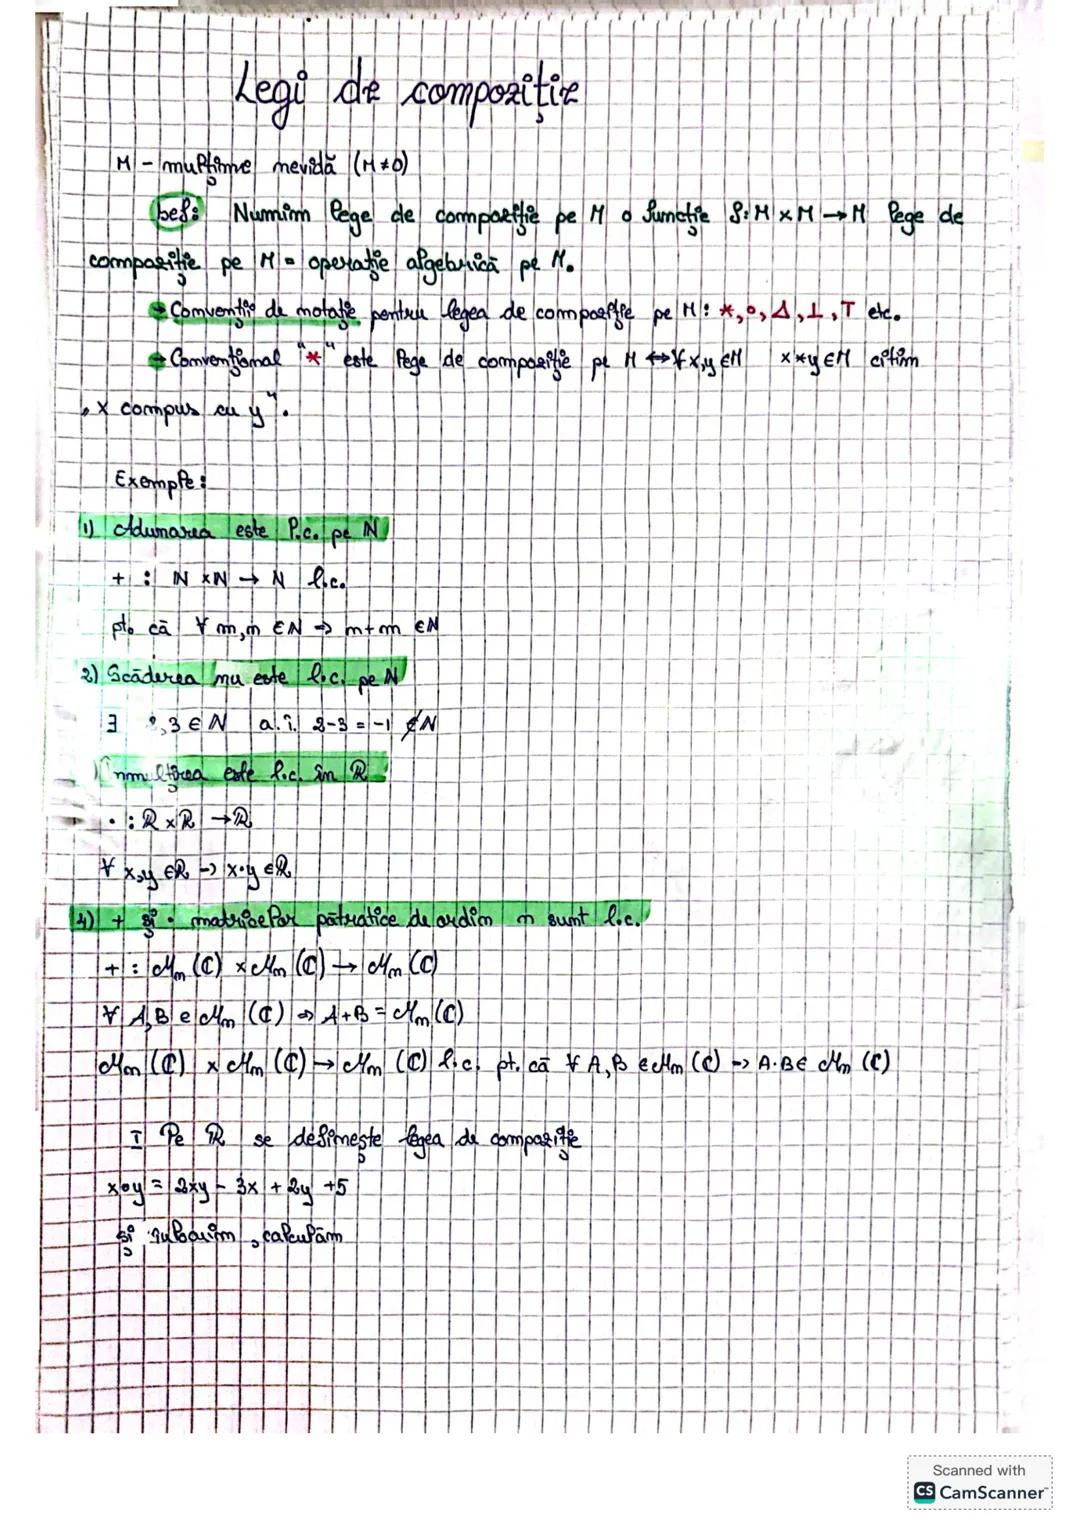 Legi de compoziție
M - mulțime nevidă (M≠0)
Def: Numim lege de compoziție pe M o funcție f: M×M → M lege de
compoziție pe M = operație algebrică pe M.
→ Convenții de notație pentru legea de compoziție pe M: *, o, Δ, ⊥, T etc.
→ Convențional "*" este lege de compoziție pe M ↔ ∀ x,y ∈ M x*y ∈ M citim
„x compus cu y".
Exemple:
1) Adunarea este l.c. pe N
+ : N × N → N l.c.
pt. că ∀ m,n ∈ N → m+n ∈ N
2) Scăderea nu este l.c. pe N
∃ 2,3 ∈ N a.î. 2-3 = -1 ∉ N
) Înmulțirea este l.c. în R
· : R × R → R
∀ x,y ∈ R → x·y ∈ R
4) + și · matricelor pătratice de ordin n sunt l.c.
+ : Mn (C) × Mn (C) → Mn (C)
∀ A,B ∈ Mn (C) → A+B = Mn (C)
Mn (C) × Mn (C) → Mn (C) l.c. pt. că ∀ A,B ∈ Mn (C) → A·B ∈ Mn (C)
I Pe R se definește legea de compoziție
x∘y = 2xy - 3x + 2y + 5
și , calculăm
Scanned with
CS CamScanner